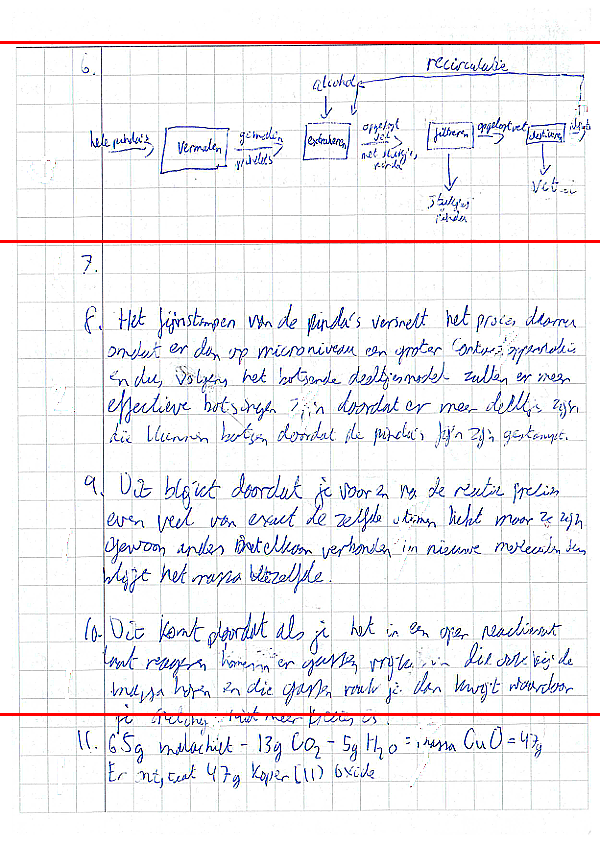 6.
recirculatie
alcohol
hele pinda's
vermalen
gemalen
pinda's
extraheren
opgelost
vet
met stukjes
pinda
filtreren
opgelost vet
destilleren
stukjes
pinda
vet
7.
8. Het fijnstampen van de pinda's versnelt het proces daarom
omdat er dan op microniveau een groter contactoppervlakte is
en dus volgens het botsende deeltjesmodel zullen er meer
effectieve botsingen zijn doordat er meer deeltjes zijn
die kunnen botsen doordat de pinda's fijn zijn gestampt.
9. Dit blijkt doordat je voor en na de reactie precies
even veel van exact de zelfde atomen hebt maar ze zijn
gewoon anders met elkaar verbonden in nieuwe moleculen dus
blijft het massa hetzelfde.
10. Dit komt doordat als je het in een open reactievat
laat reageren komen er gassen vrij die ook bij de
massa horen en die gassen raak je dan kwijt waardoor
je niet meer precies is.
11. 65g malachiet - 13g CO2 - 5g H2O = massa CuO = 47g
Er ontstaat 47g koper (II) oxide